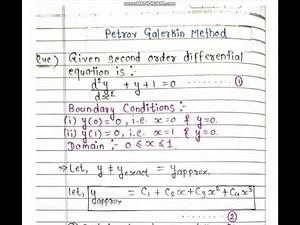 Petrov Galerkin Method
Que) Given second order differential
equation is :-
d²y/dx² + y + 1 = 0 — ①
Boundary Conditions :-
(i) y(0) = 0, i.e. x=0 & y=0.
(ii) y(1) = 0, i.e. x=1 & y=0.
Domain :- 0 ≤ x ≤ 1.
⇒ Let, y ≠ y exact = y approx.
let, y approx = C₁ + C₂x + C₃x² + C₄x³
②